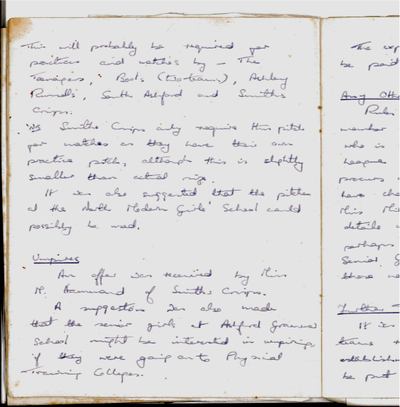 This will probably be required for
practices and matches by - The
Tanagers, Boots (two teams), Ashley
Russell's, South Ashford and Smiths
Crisps.
As Smiths Crisps only require this pitch
for matches as they have their own
practice pitch, although this is slightly
smaller than actual size.
It was also suggested that the pitches
at the North Modern Girls' School could
possibly be used.
Umpires
An offer was received by Miss
M. Hammond of Smiths Crisps.
A suggestion was also made
that the senior girls at Ashford Grammar
School might be interested in umpiring,
if they were going on to Physical
Training Colleges.
The exp
be paid
Any Oth
Rules
member
who is
keeping
process
have cha
this Mis
details
perhaps
Senior G
those
Further
It is
teams
establish
be put